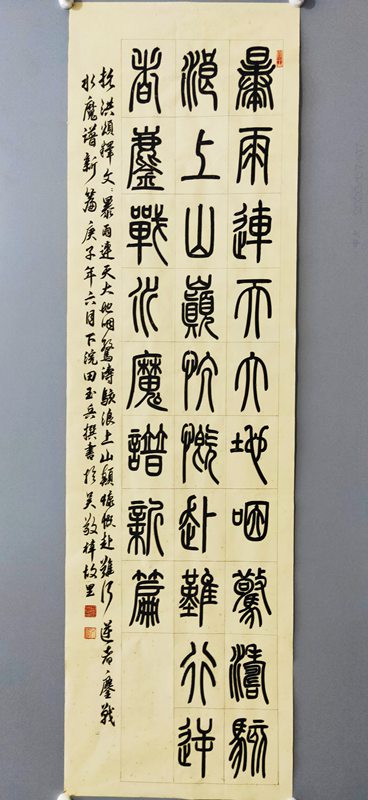 暴雨連天大地咽驚濤駭
浪上山巔忼慨赴難行逆
者鏖戰水魔譜新篇
抗洪頌釋文：暴雨連天大地咽驚濤駭浪上山顛慷慨赴難行逆者鏖戰
水魔譜新篇庚子年六月下浣田玉兵撰書於吳敬梓故里